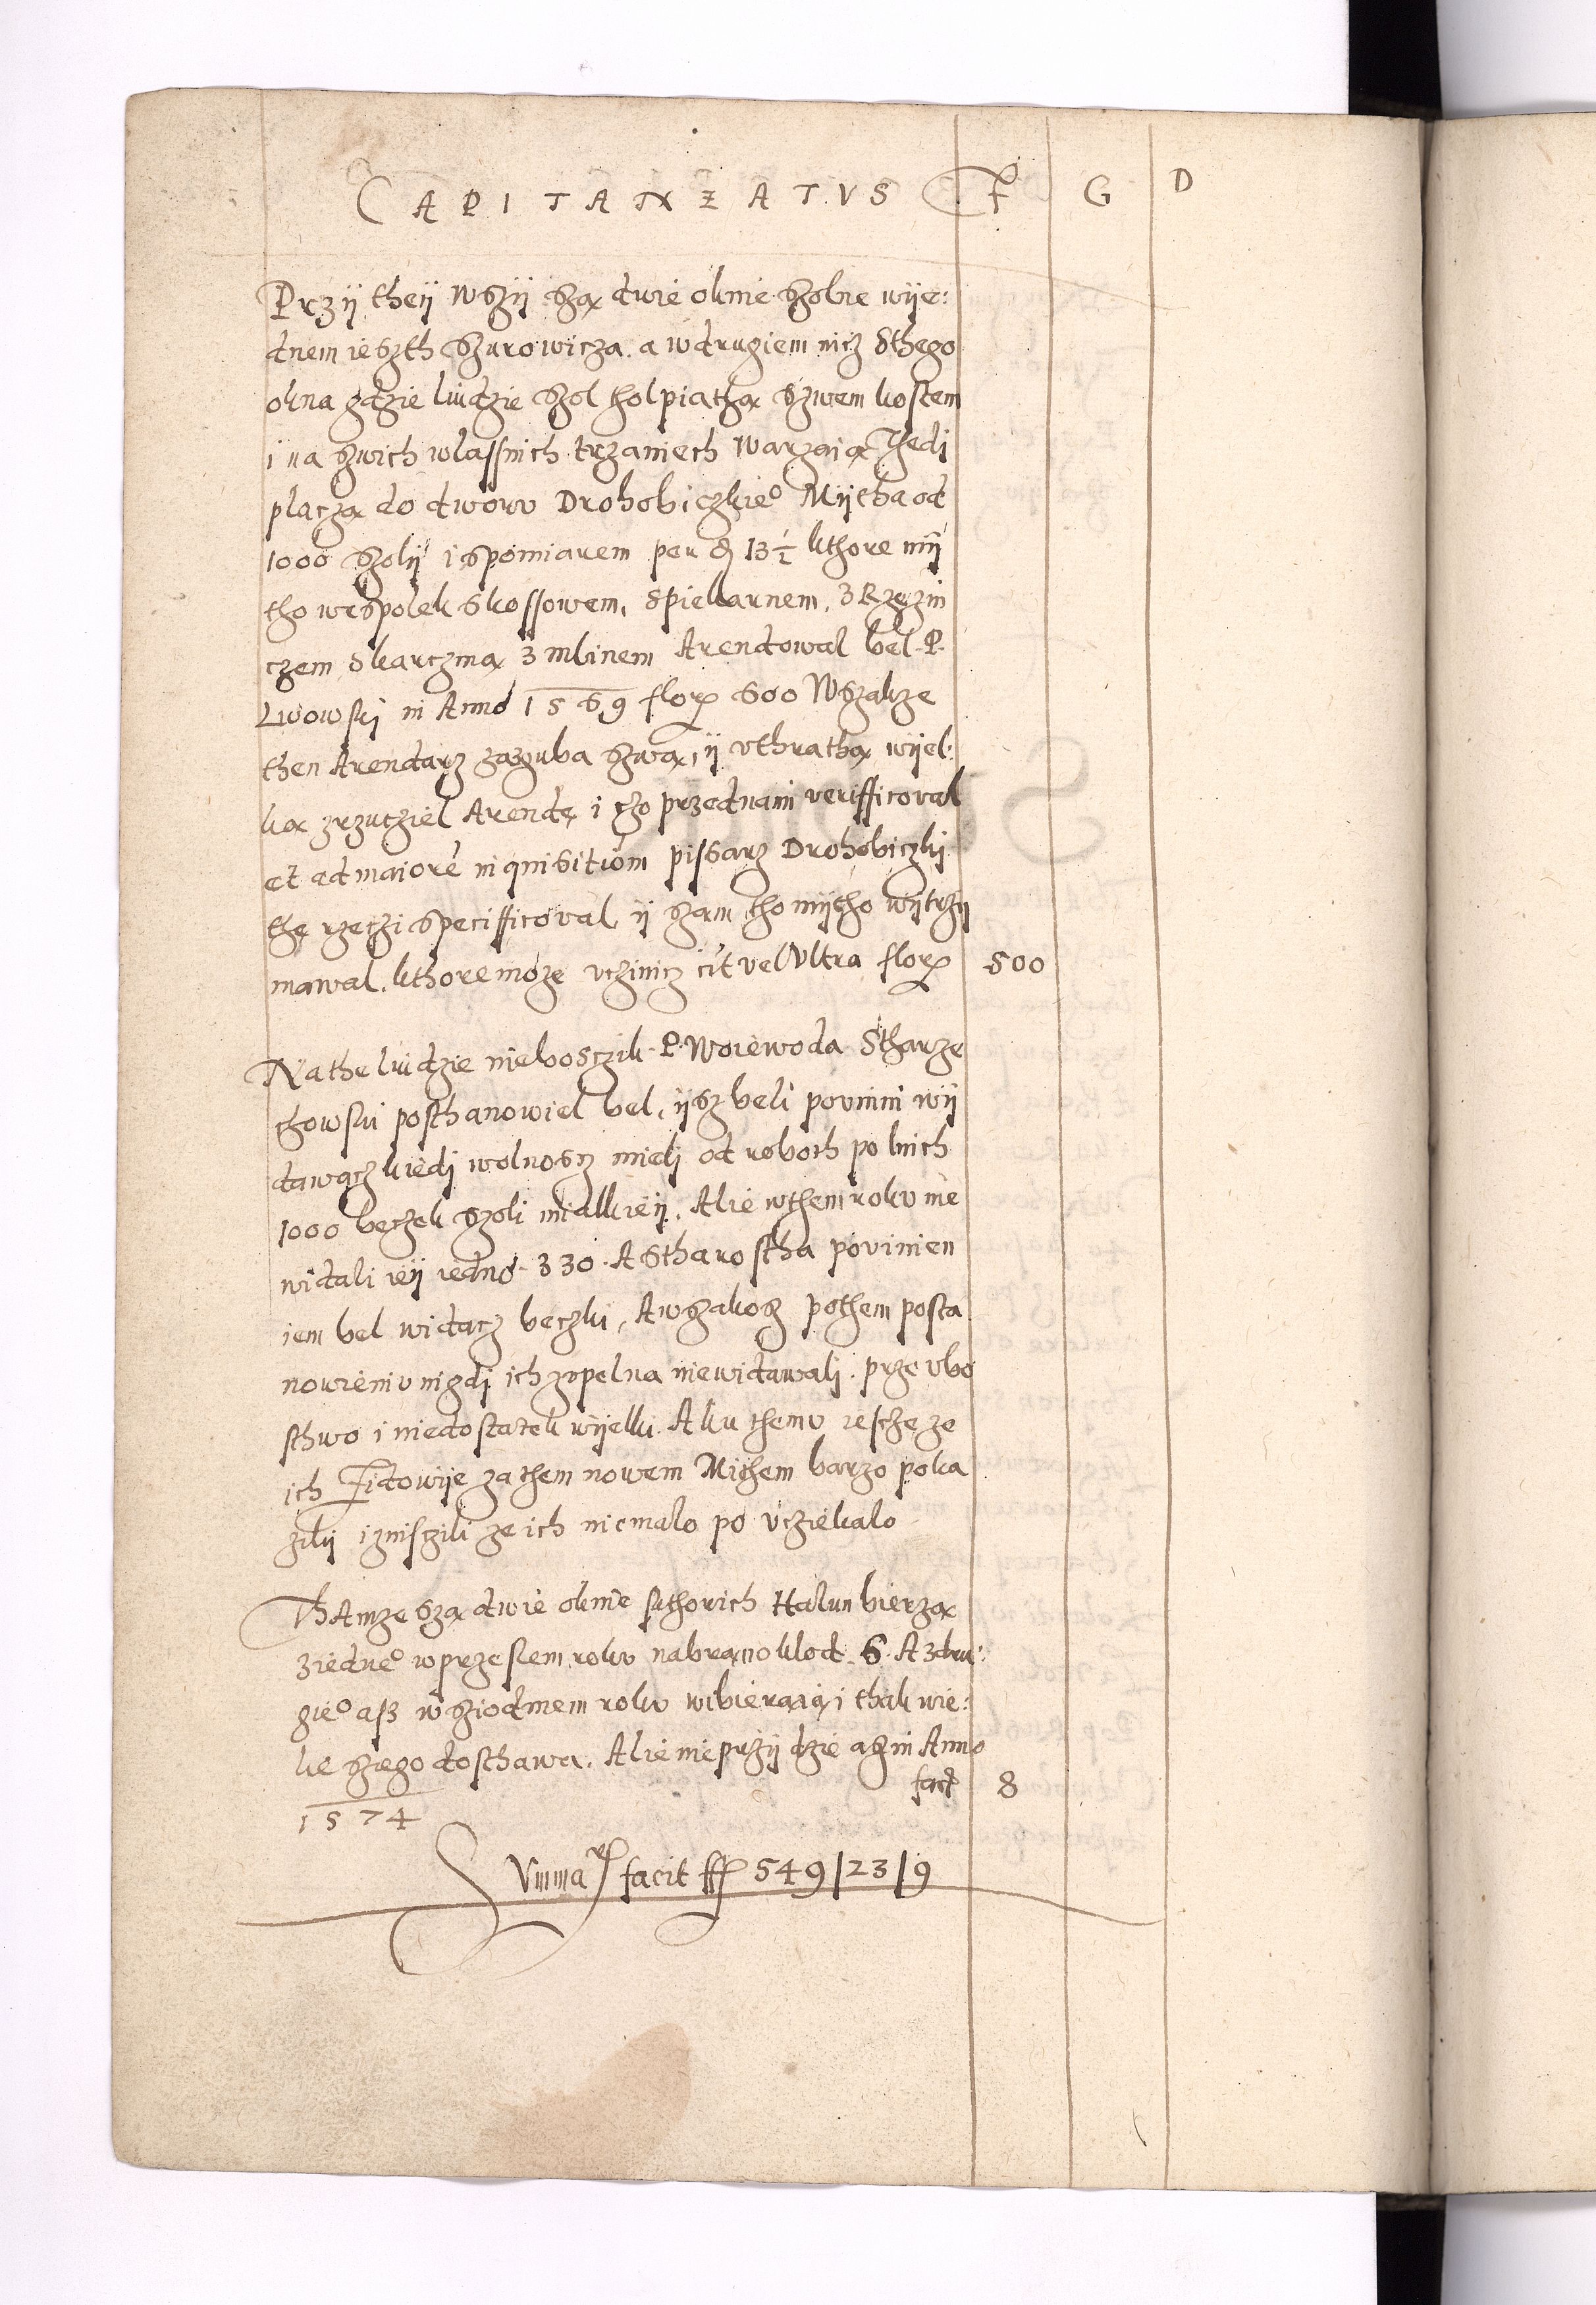 CAPITANEATVS F G D
Przÿ theÿ wszÿ szą dwie oknie szolne wÿe:
dnem ieszth szurowicza a wdrugiem nicz sthego
okna gdzie liudzie szol tholpiathą szwem kostem
i na szwich wlassnich trzaniech warzaią Thedi
placzą do dworu Drohobiczkie° Mÿtha od
1000 szolÿ i spomiarem per g 13 ½ kthore mÿ
tho wespolek skossowem, spiekarnem, z Rzezni
czem, skarczmą z mlinem Arendowal bel P.
Lwowski in Anno 1569 flor 600 Wszakze
then Arendarz zazguba szwą, ÿ vthrathą wÿel:
ką zrzucziel Arendę i tho przednami verifficoval
et ad maiorē inquisitiōm pissarz Drohobiczkÿ
thę rzeczi speciffitoval ÿ szam tho mÿtho wÿtrzÿ
mawal. kthore moze vczinicz cit vel Vltra flor 500
Na the liudzie nieboszczik P. Woiewoda Stharze
chowski posthanowiel bel, ÿsz beli povinni wÿ
dawacz kiedi wolnoscz mieli od roboth polnich
1000 beczek szoli mialkieÿ, Alie wthem roku nie
widali ieÿ iedno 330. A Stharostha povinien
iem bel widacz beczki, A wszakosz pothem posta
nowieniu nigdi ich zupelna niewidawali prze vbo
sthwo i niedostatek wÿelki. A ku themu iescze ze
ich Zidowije za them nowem Mithem barzo poka
zilÿ i znisczili ze ich niemalo po vcziekalo
Thamze szą dwie oknie skthorich Halun bierzą
z iedne° w przeslem roku nabrano klod 6 A z dru:
gie° asz w sziodmem roku wibieraią i thak wie:
le szego dosthawa. Alie nie przÿdzie asz in Anno
1574 fact 8
Summa facit ff 549/23/9